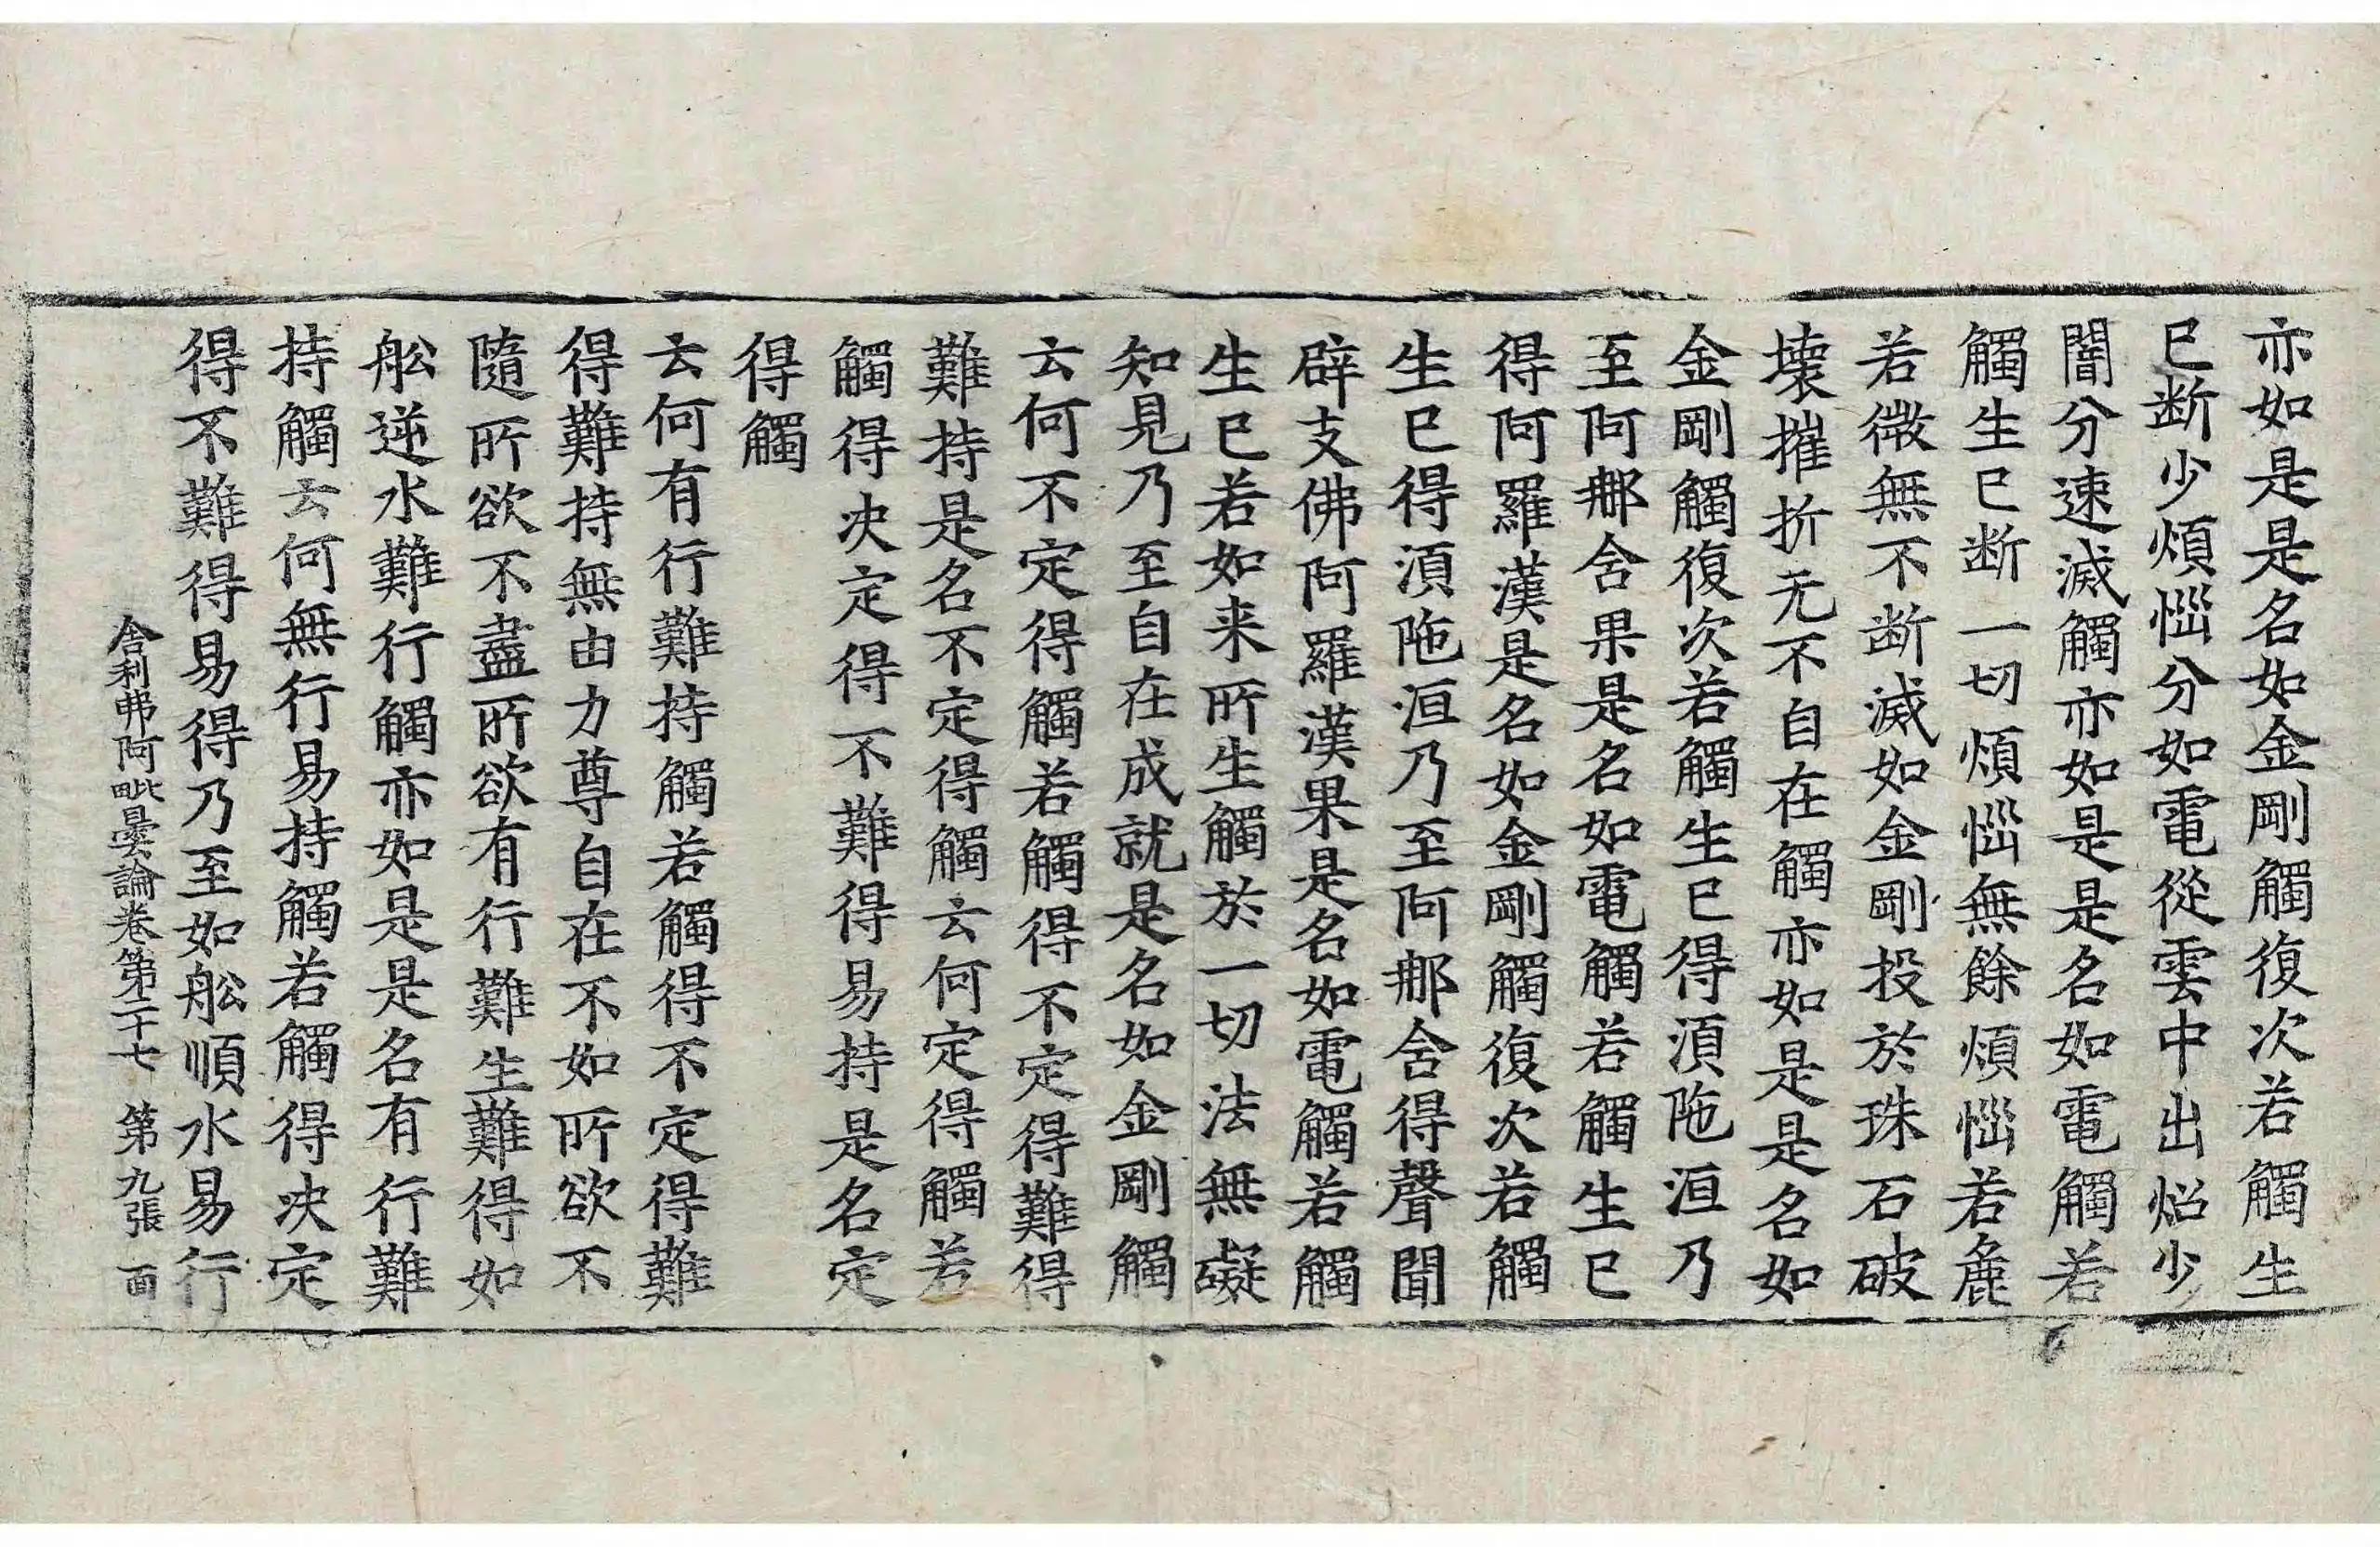 亦如是是名如金剛觸復次若觸生
已断少煩惱分如電從雲中出炤少
闇分速滅觸亦如是是名如電觸若
觸生已断一切煩惱無餘煩惱若麁
若微無不断滅如金剛投於珠石破
壊摧折无不自在觸亦如是是名如
金剛觸復次若觸生已得湏陁洹乃
至阿那含果是名如電觸若觸生已
得阿羅漢是名如金剛觸復次若觸
生已得湏陁洹乃至阿那含得聲聞
辟支佛阿羅漢果是名如電觸若觸
生已若如来所生觸於一切法無礙
知見乃至自在成就是名如金剛觸
云何不定得觸若觸得不定得難得
難持是名不定得觸云何定得觸若
觸得决定得不難得易持是名定
得觸
云何有行難持觸若觸得不定得難
得難持無由力尊自在不如所欲不
隨所欲不盡所欲有行難生難得如
舩逆水難行觸亦如是是名有行難
持觸云何無行易持觸若觸得决定
得不難得易得乃至如舩順水易行
舍利弗阿毗曇論卷第二十七 第九張 面